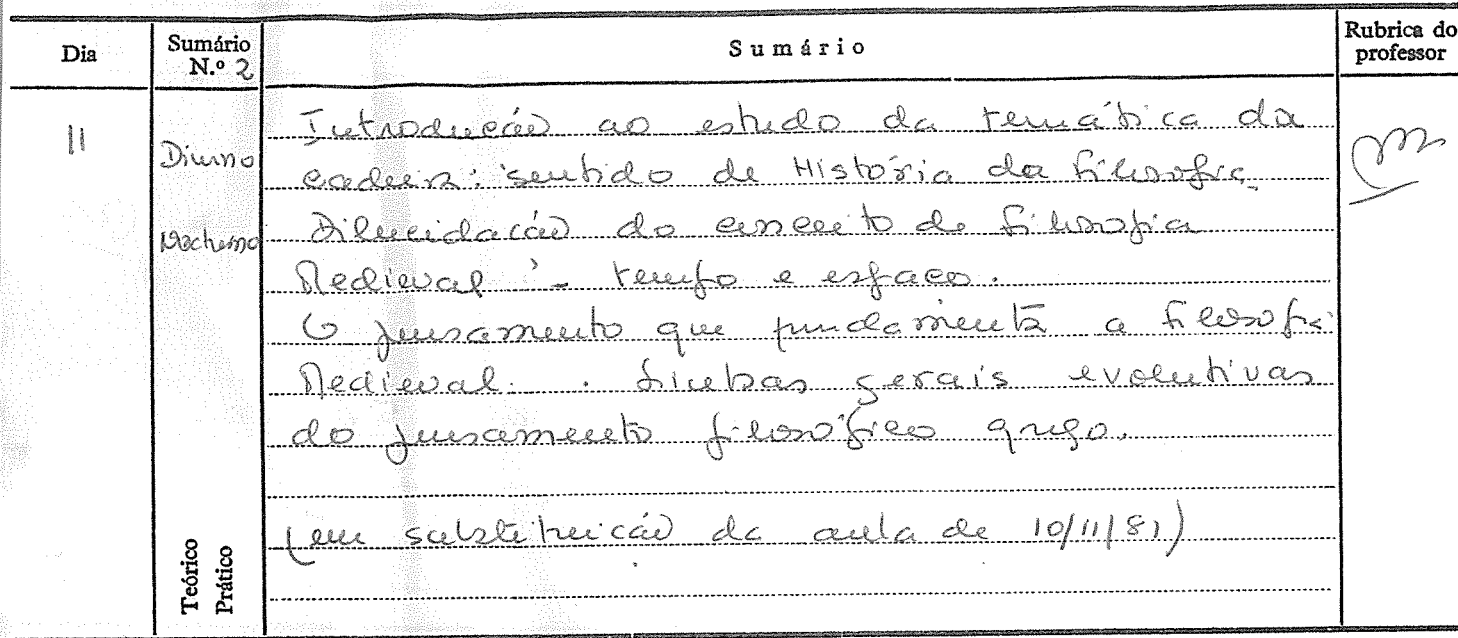 Dia
Sumário N.º 2
Sumário
Rubrica do professor
11
Diurno
Nocturno
Introdução ao estudo da temática da
cadeira: sentido de História da Filosofia.
Dilucidação do conceito de Filosofia
Medieval - tempo e espaço.
O pensamento que fundamenta a Filosofia
Medieval. . Linhas gerais evolutivas
do pensamento filosófico grego.
(em substituição da aula de 10/11/81)
Teórico
Prático